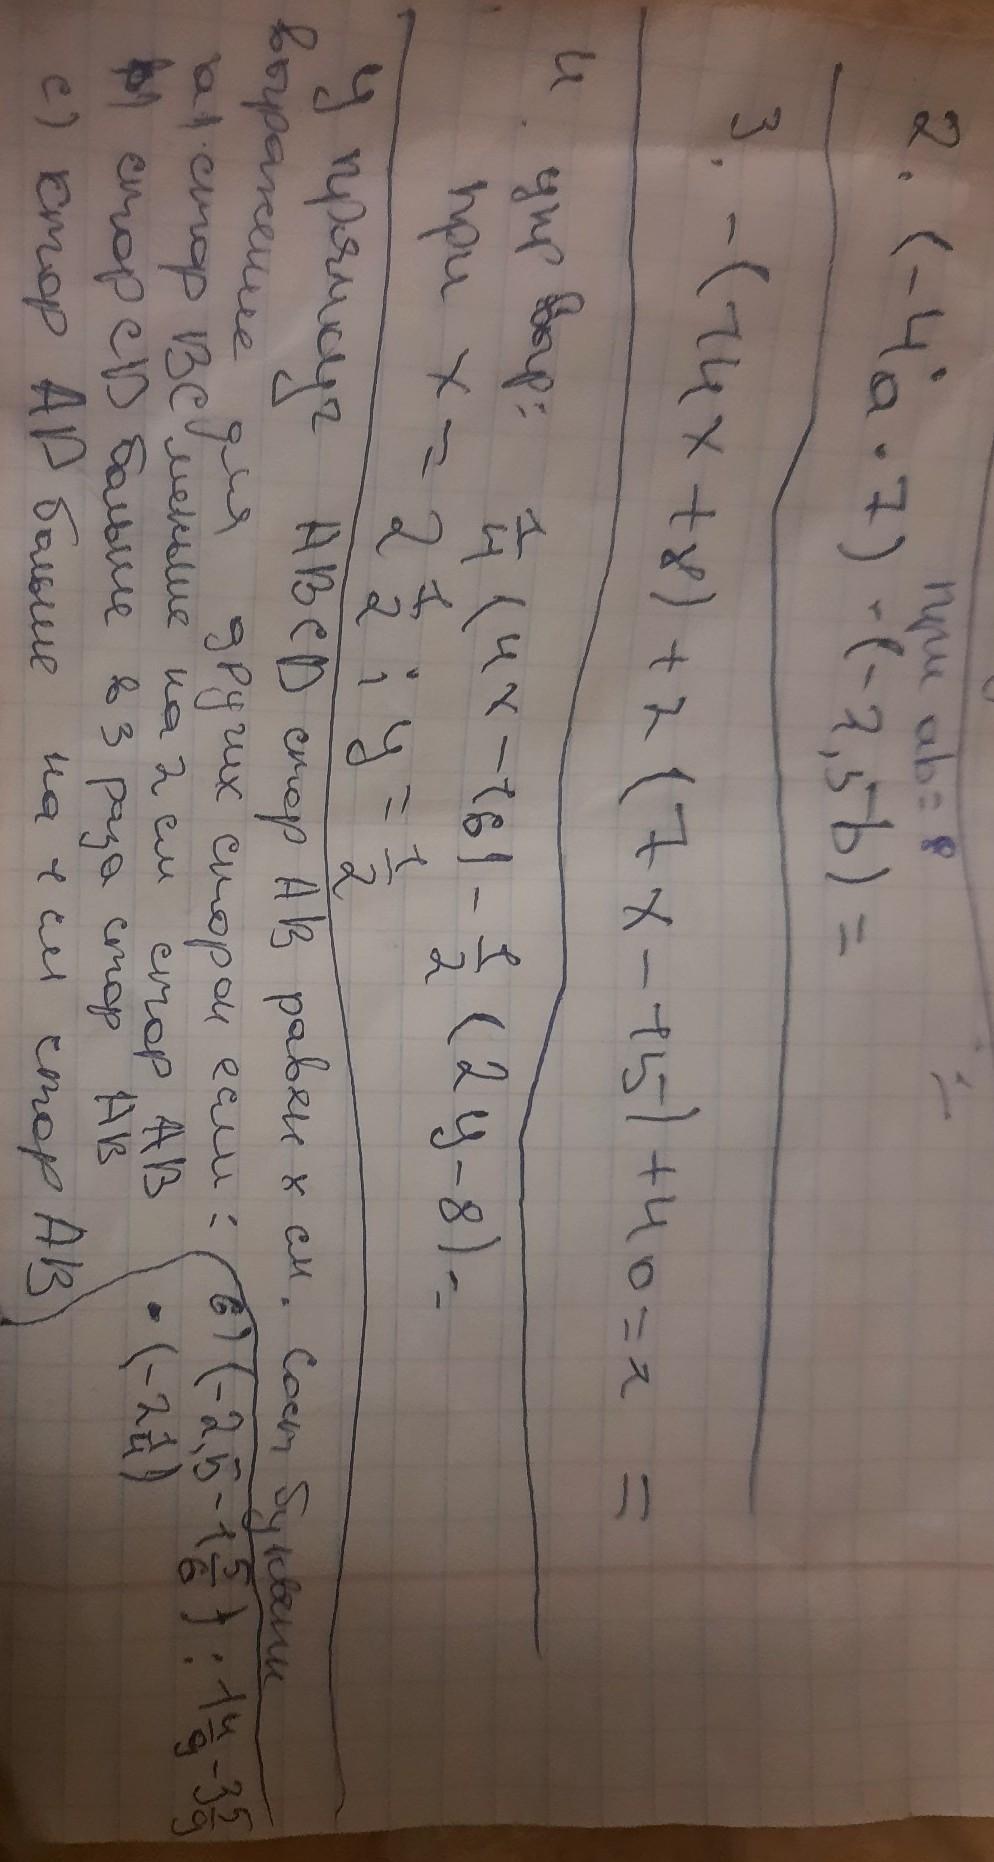 при ab = 8
2. (-4a · 7) · (-2,5b) =
3. -(14x + 8) + 2(7x - 15) + 40 = 2 =
4. упр выр: 1/4 (4x - 16) - 1/2 (2y - 8) =
при x = 2 1/2; y = 1/2
У прямоуг ABCD стор AB равен x см. Сост буквенн
выражение для других сторон если:
a) стор BC меньше на 2 см стор AB
b) стор CD больше в 3 раза стор AB
c) стор AD больше на 1 см стор AB
6) (-2,5 - 1 5/6) : 1 4/9 - 3 5/9
· (-2 1/4)